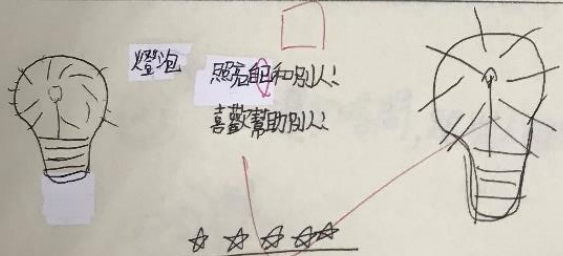 燈泡
照亮自己和別人!
喜歡幫助別人!